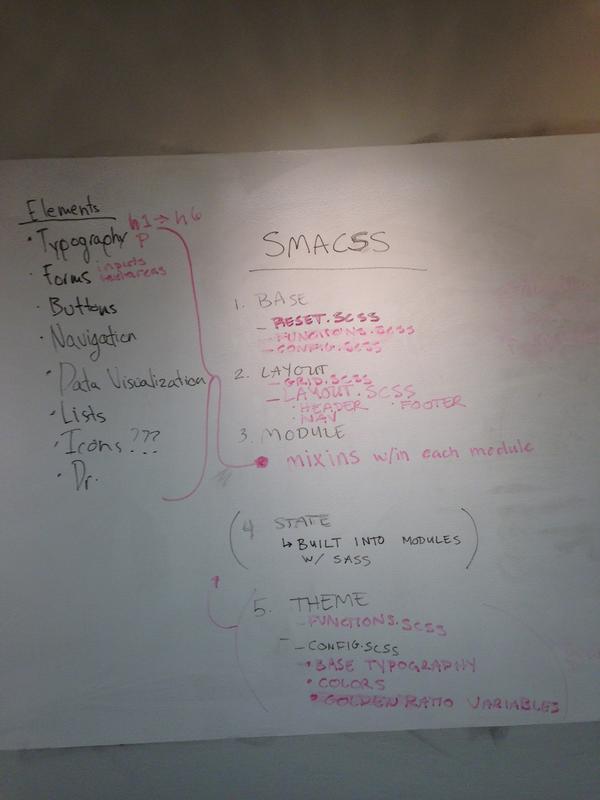 Elements
• Typography h1 → h6
P
• Forms inputs textareas
• Buttons
• Navigation
• Data Visualization
• Lists
• Icons ???
• Dr.
SMACSS
1. BASE
– RESET.SCSS
– FUNCTIONS.SCSS
– CONFIG.SCSS
2. LAYOUT
– GRID.SCSS
– LAYOUT.SCSS
• HEADER • FOOTER
• NAV
3. MODULE
• mixins w/in each module
(4 STATE
↳ BUILT INTO MODULES
W/ SASS)
5. THEME
– FUNCTIONS.SCSS
– CONFIG.SCSS
• BASE TYPOGRAPHY
• COLORS
• GOLDEN RATIO VARIABLES